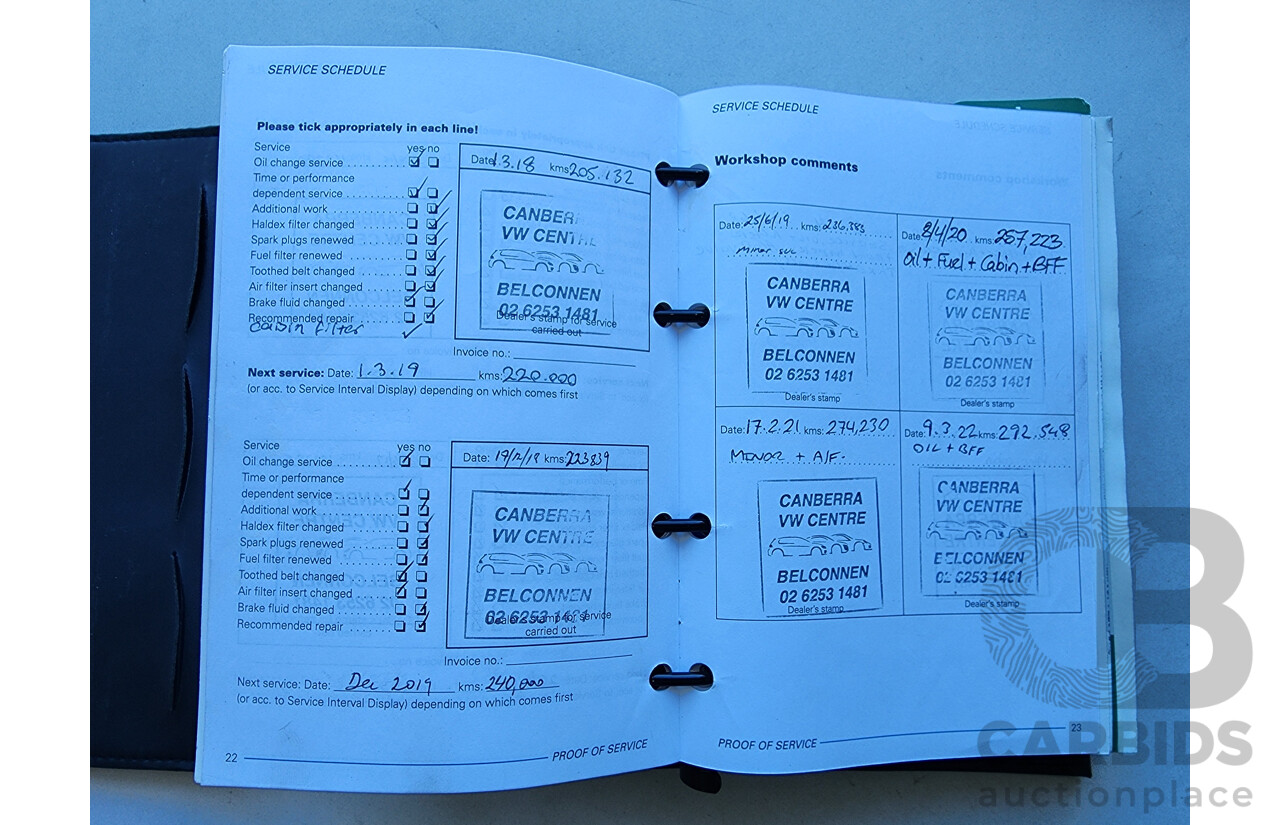 SERVICE SCHEDULE
Please tick appropriately in each line!
Service yes no
Oil change service
Time or performance
dependent service
Additional work
Haldex filter changed
Spark plugs renewed
Fuel filter renewed
Toothed belt changed
Air filter insert changed
Brake fluid changed
Recommended repair
Cabin filter
Date: 1.3.18 kms: 205.132
CANBERRA
VW CENTRE
BELCONNEN
02 6253 1481
Dealer's stamp for service
carried out
Invoice no.:
Next service: Date: 1.3.19 kms: 220.000
(or acc. to Service Interval Display) depending on which comes first
Service yes no
Oil change service
Time or performance
dependent service
Additional work
Haldex filter changed
Spark plugs renewed
Fuel filter renewed
Toothed belt changed
Air filter insert changed
Brake fluid changed
Recommended repair
Date: 19/12/18 kms: 223839
CANBERRA
VW CENTRE
BELCONNEN
02 6253 1481
Dealer's stamp for service
carried out
Invoice no.:
Next service: Date: Dec 2019 kms: 240,000
(or acc. to Service Interval Display) depending on which comes first
22 PROOF OF SERVICE
SERVICE SCHEDULE
Workshop comments
Date: 25/6/19 kms: 236,383
minor svc
CANBERRA
VW CENTRE
BELCONNEN
02 6253 1481
Dealer's stamp
Date: 8/4/20 kms: 257,223
Oil + Fuel + Cabin + BFF
CANBERRA
VW CENTRE
BELCONNEN
02 6253 1481
Dealer's stamp
Date: 17.2.21 kms: 274,230
MINOR + A/F.
CANBERRA
VW CENTRE
BELCONNEN
02 6253 1481
Dealer's stamp
Date: 9.3.22 kms: 292.548
OIL + BFF
CANBERRA
VW CENTRE
BELCONNEN
02 6253 1481
Dealer's stamp
PROOF OF SERVICE 23
CB
CARBIDS
auctionplace